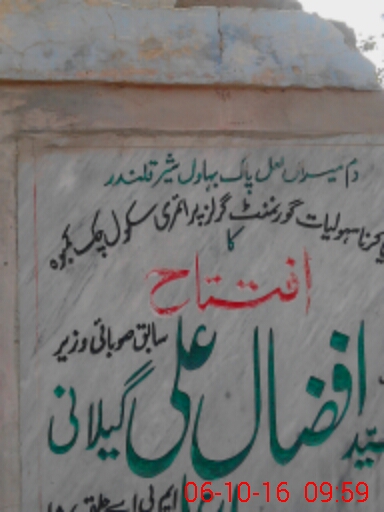 دم میراں لعل پاک بہاول شیر قلندر
سہولیات گورنمنٹ گرلز پرائمری سکول چک
کا
افتتاح
سابق صوبائی وزیر
سید افضال علی گیلانی
ایم پی اے حلقہ
06-10-16 09:59